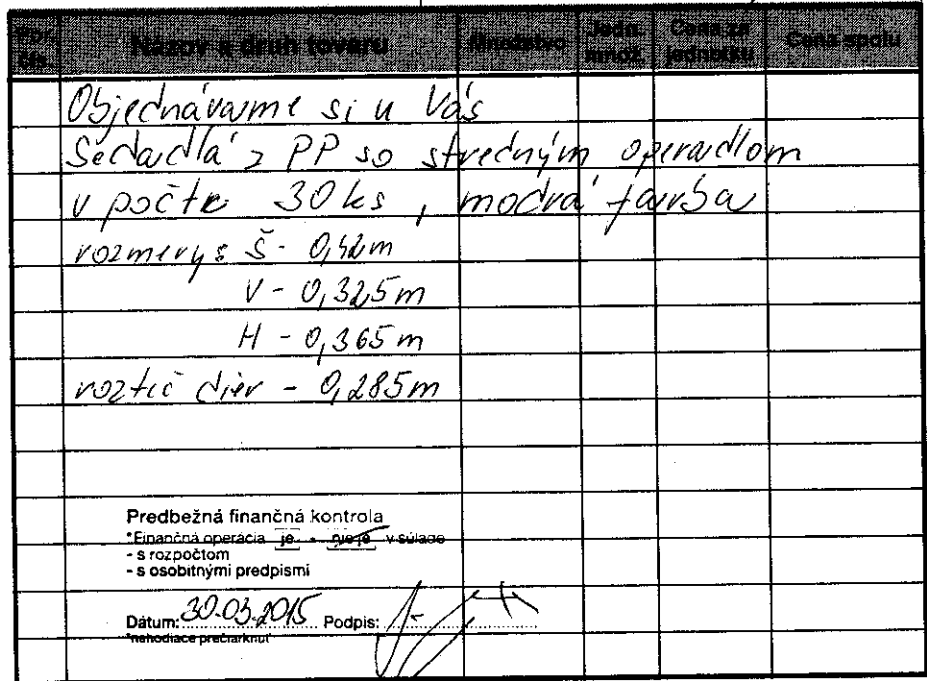 Por. čís. Názov a druh tovaru Množstvo Jedn. množ. Cena za jednotku Cena spolu
Objednávame si u Vás
Sedadlá z PP so stredným operadlom
v počte 30 ks, modrá farba
rozmery: Š - 0,42m
V - 0,325m
H - 0,365m
rozteč dier - 0,285m
Predbežná finančná kontrola
*Finančná operácia je - nie je v súlade
- s rozpočtom
- s osobitnými predpismi
Dátum: 30.03.2015 Podpis:
*nehodiace prečiarknuť